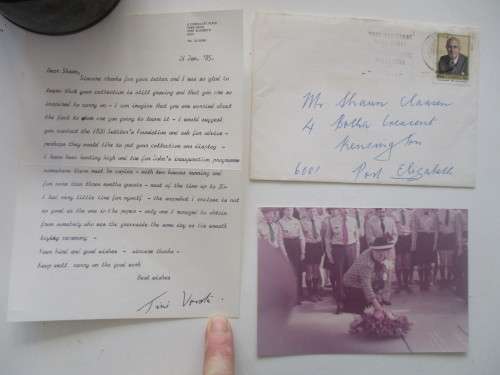 PORT ELIZABETH
21 Jan, '85.
Dear Shaun,
Sincere thanks for your letter and I was so glad to
know that your collection is still growing and that you are so
inspired to carry on - I can imagine that you are worried about
the fact to whom you are going to leave it - I would suggest
you contact the 1820 Settler's Foundation and ask for advice -
perhaps they would like to put your collection on display -
I have been looking high and low for John's inauguration programme
somewhere there must be copies - with two houses moving and
for more than three months guests - most of the time up to
I had very little time for myself - the snapshot I enclose is not
so good as the one in the papers - only one I managed to obtain
from somebody who saw the graveside the same day as the wreath
laying ceremony -
Your kind and good wishes - sincere thanks -
Keep well, carry on the good work
Best wishes
Tini Vorster
Mr Shaun
4 Botha Crescent
Kensington
6001 Port Elizabeth